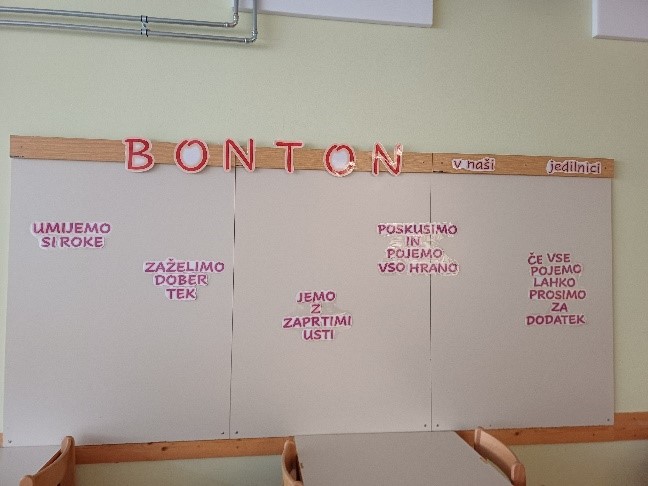 BONTON
v naši jedilnici
UMIJEMO
SI ROKE
ZAŽELIMO
DOBER
TEK
JEMO
Z
ZAPRTIMI
USTI
POSKUSIMO
IN
POJEMO
VSO HRANO
ČE VSE
POJEMO
LAHKO
PROSIMO
ZA
DODATEK